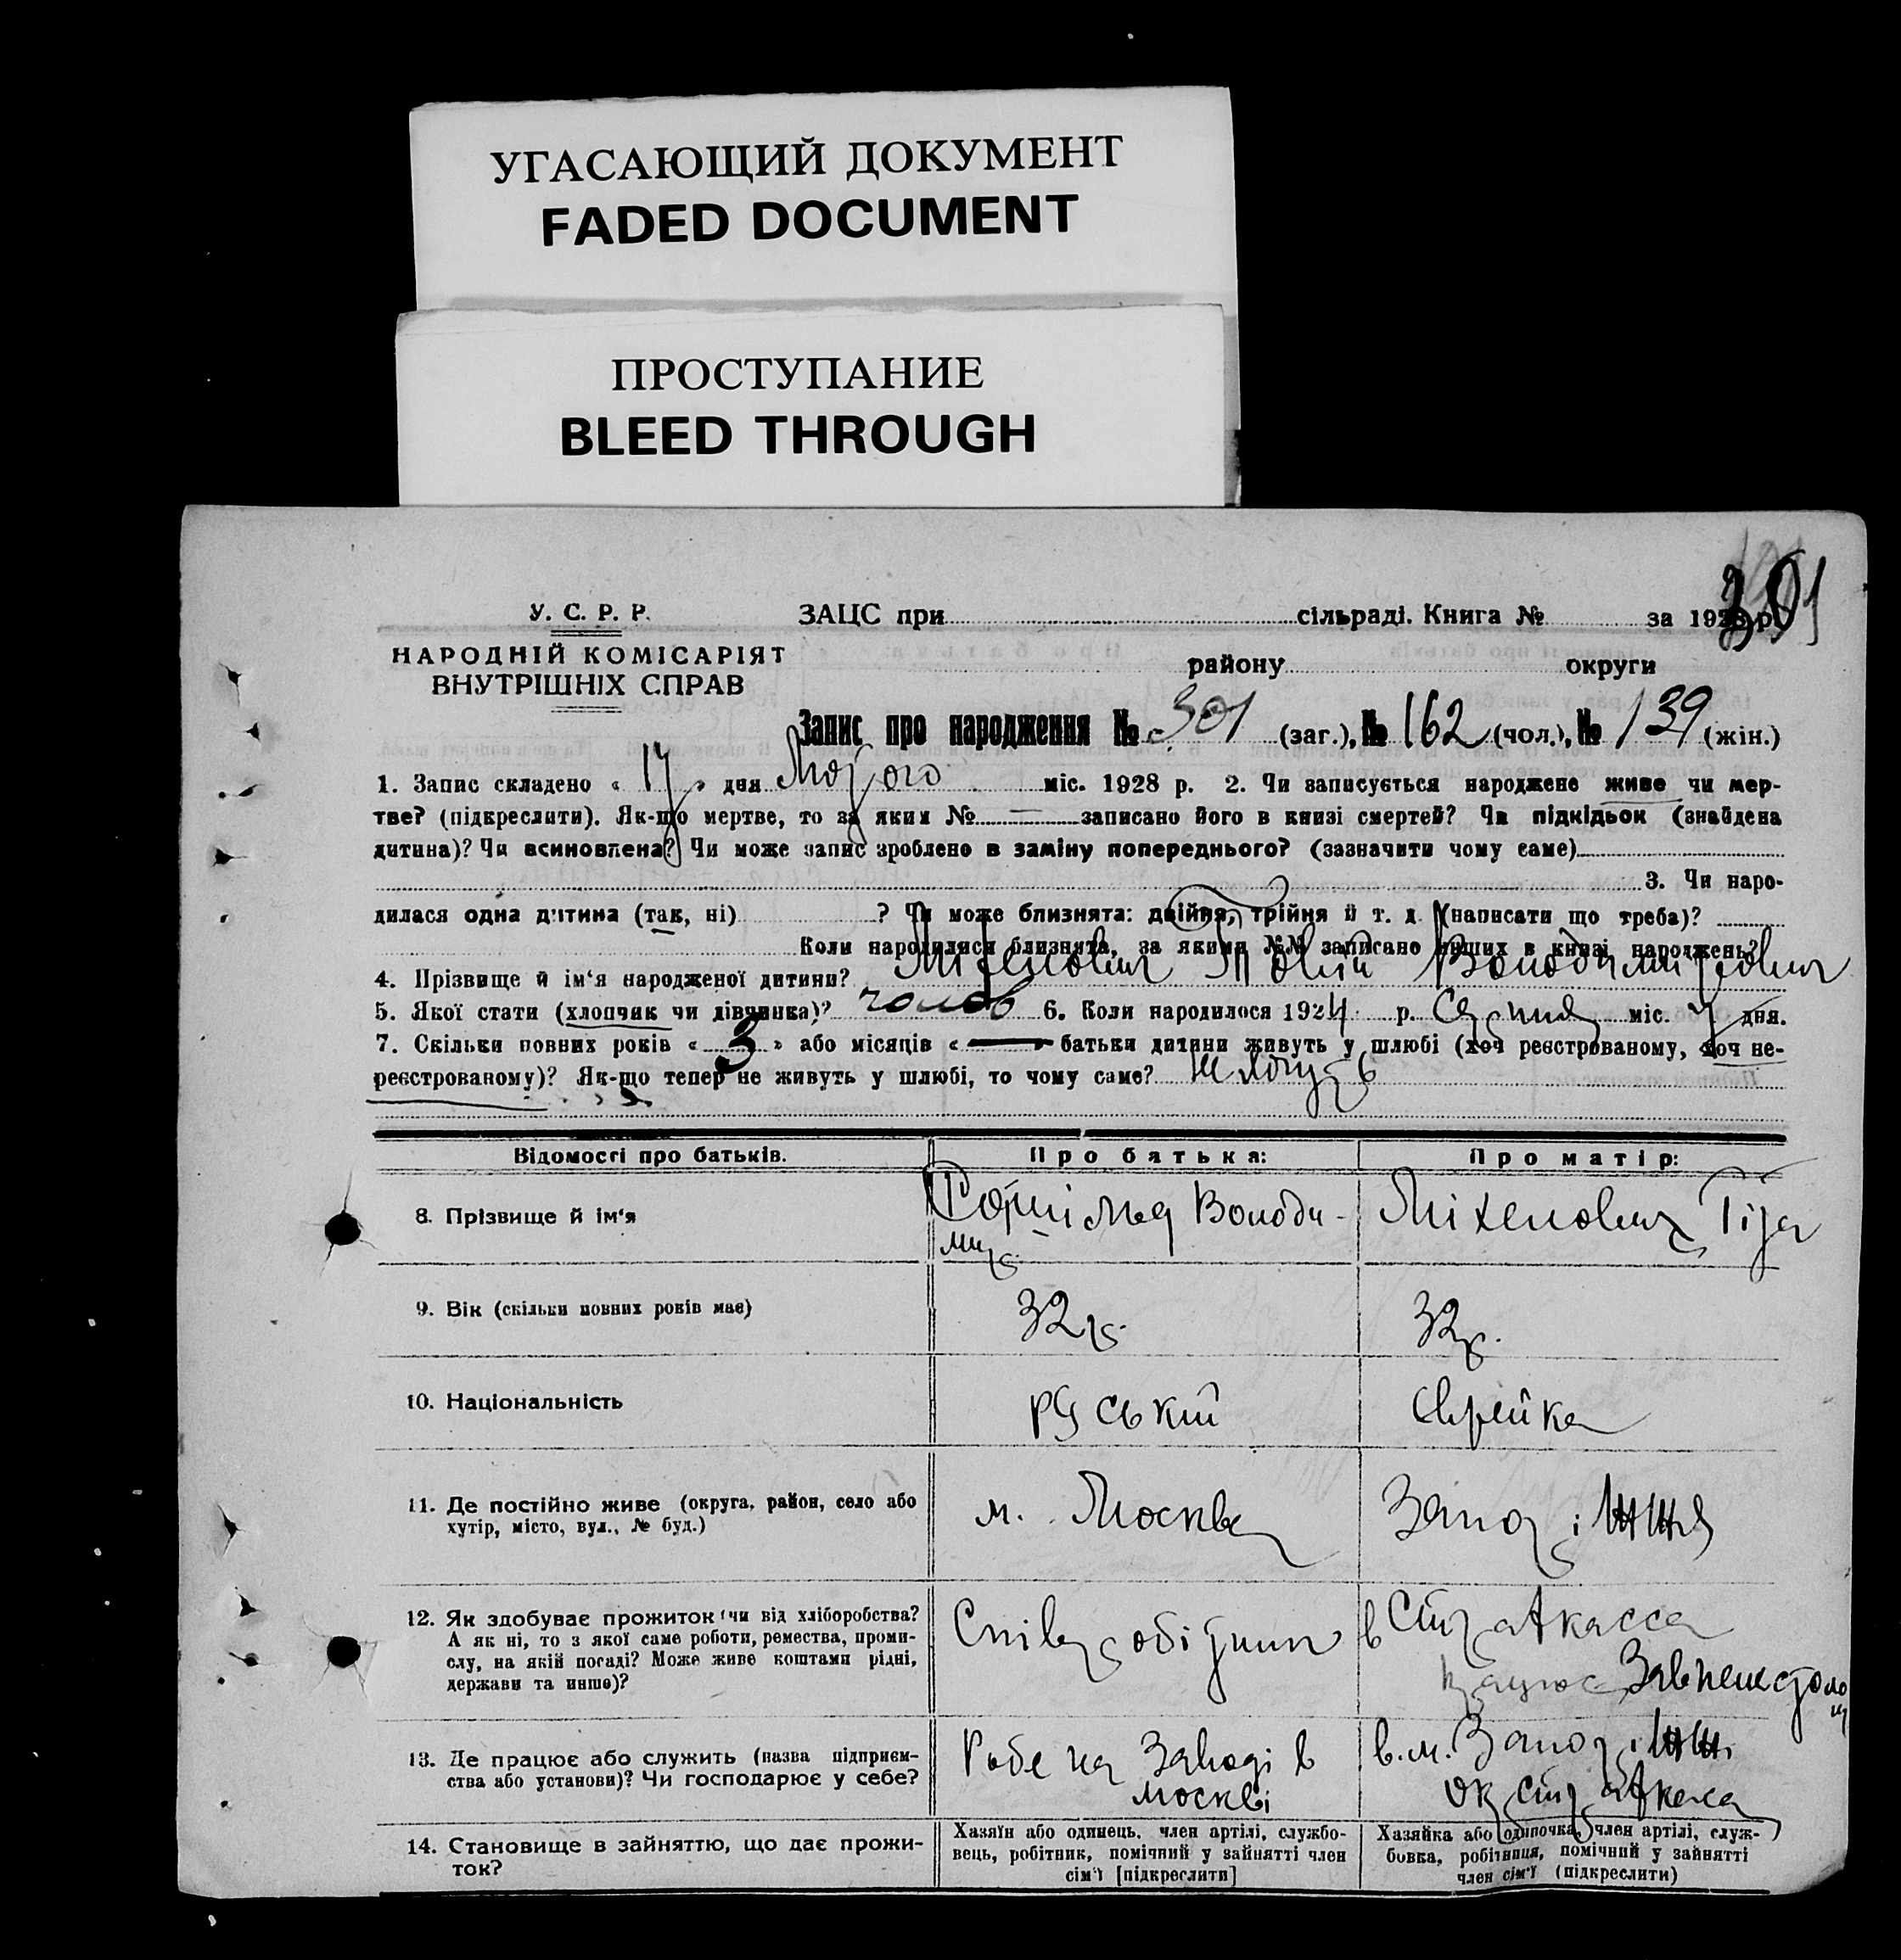 УГАСАЮЩИЙ ДОКУМЕНТ
FADED DOCUMENT
ПРОСТУПАНИЕ
BLEED THROUGH
301
У. С. Р. Р.
ЗАЦС при сільраді. Книга № за 1928 р.
НАРОДНІЙ КОМІСАРІЯТ
ВНУТРІШНІХ СПРАВ
району округи
Запис про народження № 301 (заг.), № 162 (чол.), № 139 (жін.)
1. Запис складено « 17 » дня Лютого міс. 1928 р. 2. Чи записується народжене живе чи мер-
тве? (підкреслити). Як-що мертве, то за яким № — записано його в книзі смертей? Чи підкідьок (знайдена
дитина)? Чи всиновлена? Чи може запис зроблено в заміну попереднього? (зазначити чому саме)
3. Чи наро-
дилася одна дитина (так, ні) ? Чи може близнята: двійня, трійня й т. д. (написати що треба)?
Коли народилися близнята, за якими №№ записано інших в книзі народжень?
4. Прізвище й ім'я народженої дитини? Міхелович Володимирович
5. Якої стати (хлопчик чи дівчинка)? чолов 6. Коли народилося 1924 р. Серпня міс. 7 дня.
7. Скільки повних років « 3 » або місяців « — » батьки дитини живуть у шлюбі (хоч реєстрованому, хоч не-
реєстрованому)? Як-що тепер не живуть у шлюбі, то чому саме? живуть
Відомості про батьків. Про батька: Про матір:
8. Прізвище й ім'я
Володи-
мир.
Міхелович
9. Вік (скільки повних років має) 32 р. 32 р.
10. Національність руський Єврейка
11. Де постійно живе (округа, район, село або
хутір, місто, вул., № буд.)
м. Москва
Запоріжжя
12. Як здобуває прожиток (чи від хліборобства?
А як ні, то з якої саме роботи, ремества, проми-
слу, на якій посаді? Може живе коштами рідні,
держави та инше)?
Співробітник
в Страхкасса
працює Завпенстолом
13. Де працює або служить (назва підприєм-
ства або установи)? Чи господарює у себе?
Робе на Заводі в
Москві
в. м. Запоріжжі
Окр Страхкаса
14. Становище в зайняттю, що дає прожи-
ток?
Хазяїн або одинець, член артілі, службо-
вець, робітник, помічний у зайнятті член
сім'ї [підкреслити]
Хазяйка або одиночка, член артілі, служ-
бовка, робітниця, помічний у зайнятті
член сім'ї (підкреслити)